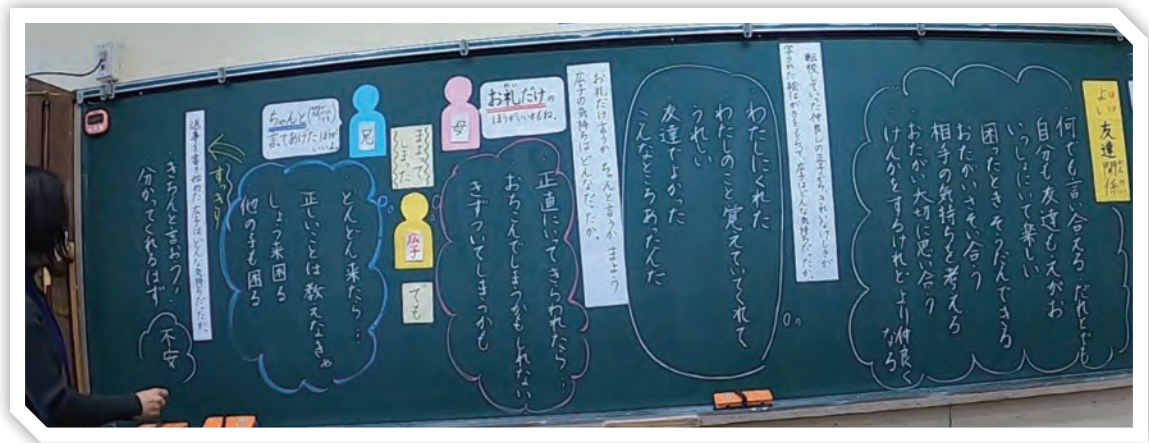 よい友達関係
何でも言い合える だれとでも
自分も友達もえがお
いっしょにいて楽しい
困ったときそうだんできる
おたがいさそい合う
相手の気持ちを考える
おたがい大切に思い合う
けんかをするけれどより仲良く
なる
転校していった仲良しの正子から、きれいなけしきが
写された絵はがきをもらって、広子はどんな気持ちだったか。
わたしにくれた
わたしのこと覚えていてくれて
うれしい
友達でよかった
こんなところあったんだ
お札だけ言うか、ちゃんと言うか まよう
広子の気持ちは どんなだったか。
お札だけの
ほうがいいすもね。
母
正直にいってきらわれたら…
おちこんでしまうかもしれない
きずついてしまうかも
まよって
しまった
広子
でも
兄
ちゃんと
言ってあげたほうが
いいよ。
どんどん来たら…
正しいことは教えなきゃ
しょう来困る
他の子も困る
すっきり
返事を書き始めた広子はどんな気持ちだったか。
きちんと言おう!
分かってくれるはず
不安